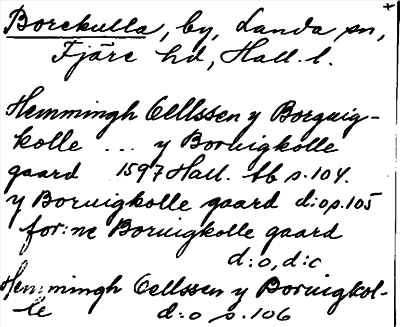 Borekulla, by, Landa sn,
Fjäre hd, Hall. l.
Hemmingh Oellssen y Borguig-
kolle ... y Boruigkolle
gaard 1597 Hall. tb s. 104.
y Boruigkolle gaard d:o, s. 105
for:ne Boruigkolle gaard
d:o, d:o
Hemmingh Oellssen y Boruigkol-
le d:o s. 106